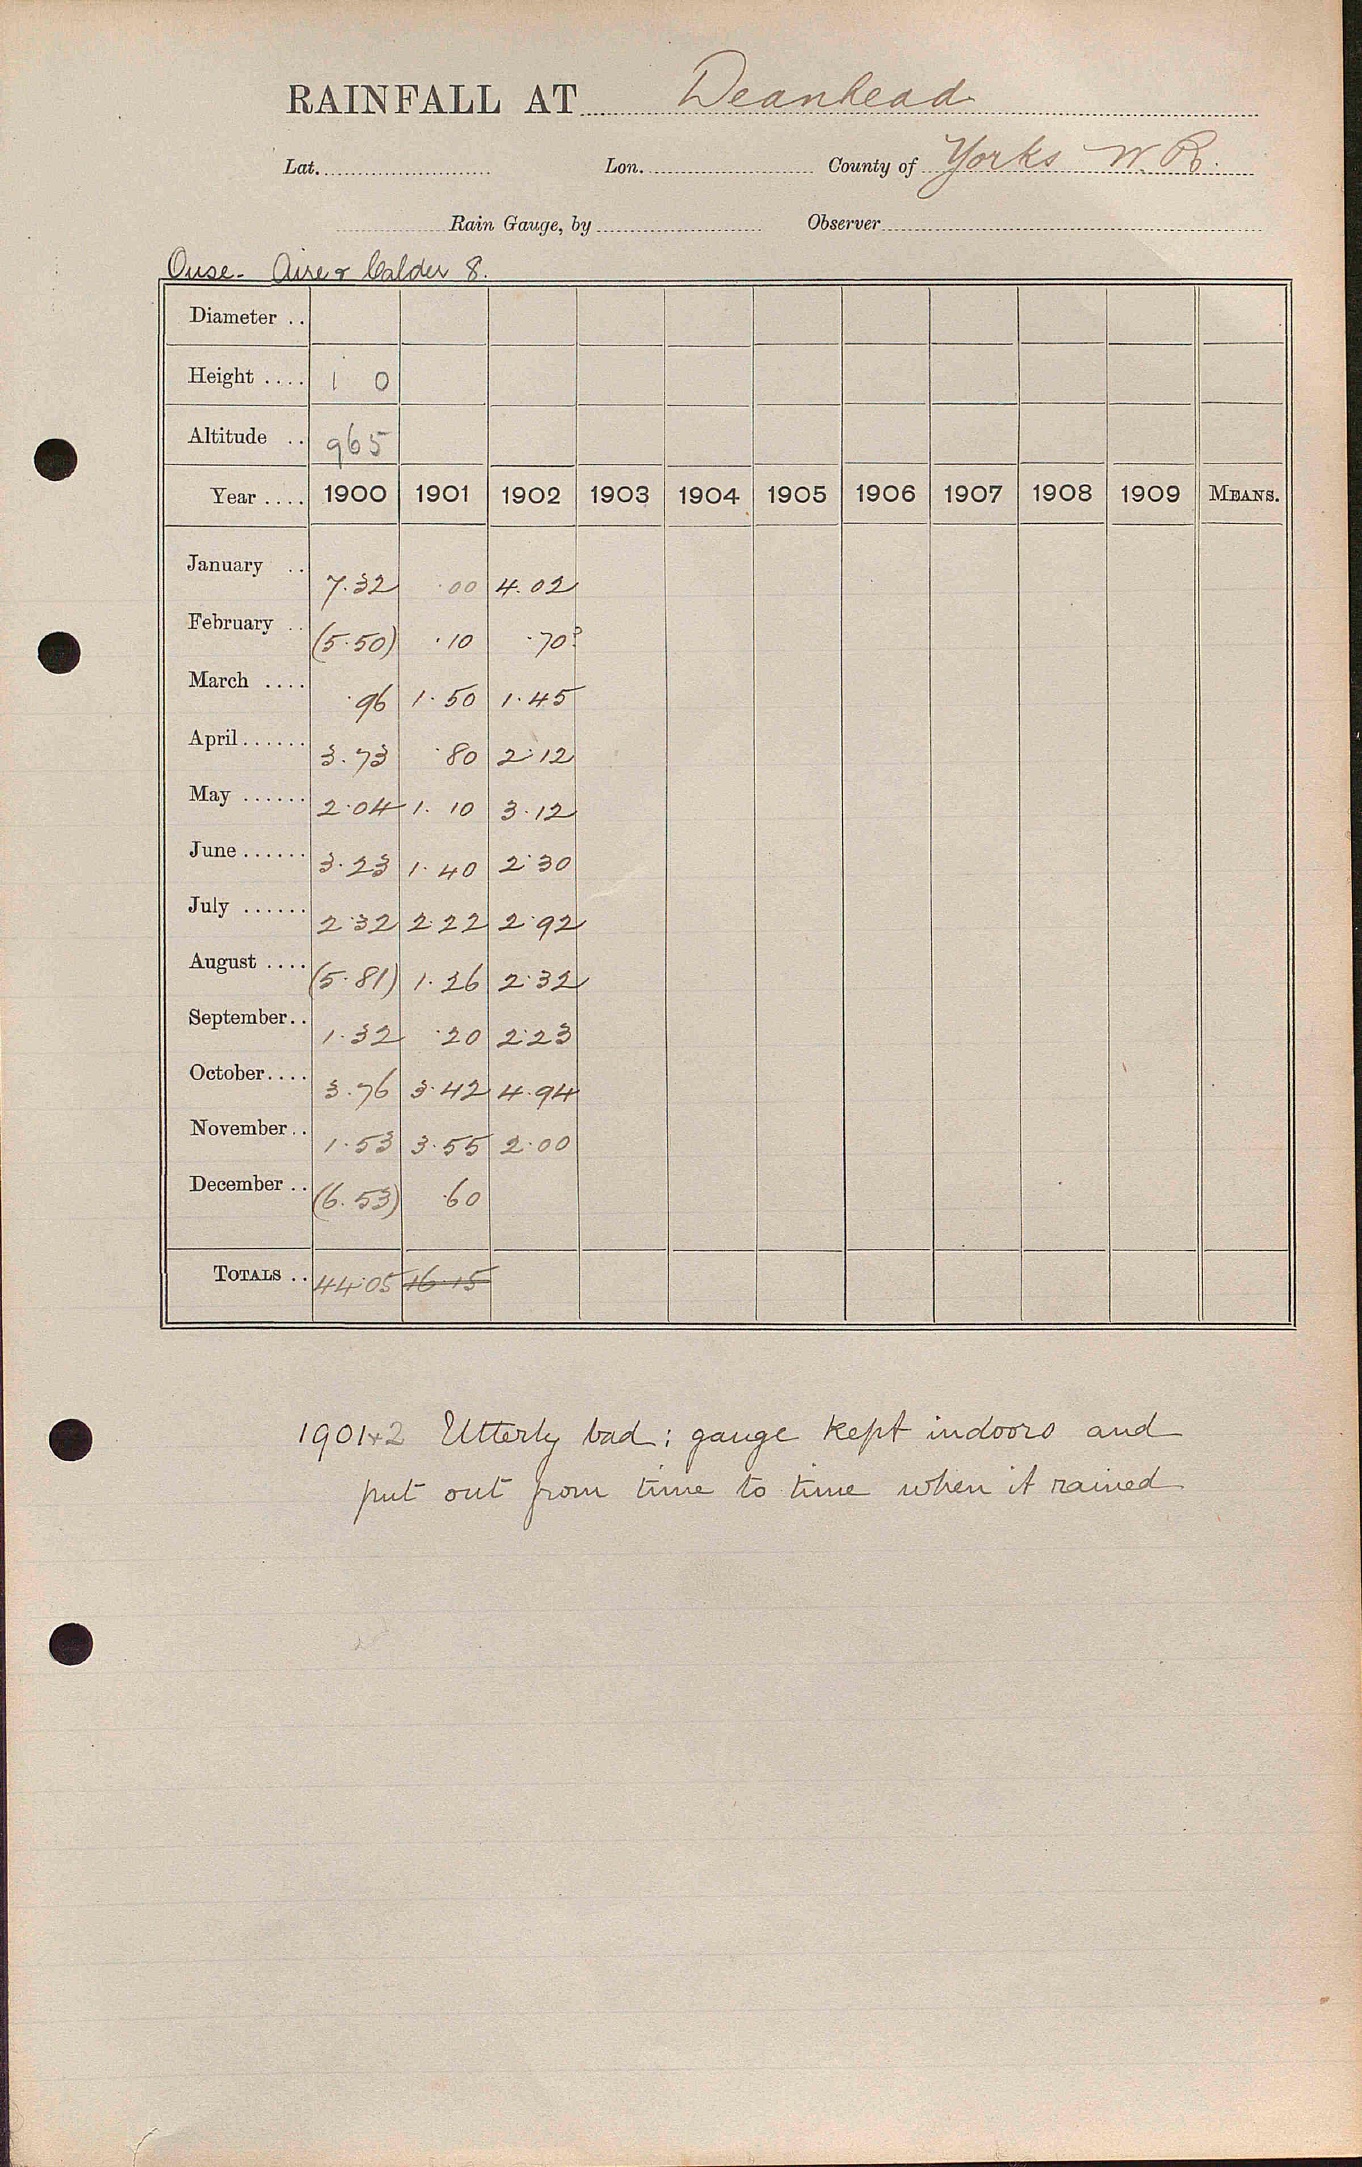 RAINFALL AT Deanhead
Lat. Lon. County of Yorks W.R.
Rain Gauge, by Observer
Ouse - Aire & Calder 8.
Diameter ..
Height .... 1 0
Altitude .. 965
Year .... 1900 1901 1902 1903 1904 1905 1906 1907 1908 1909 MEANS.
January .. 7.32 .00 4.02
February .. (5.50) .10 .70?
March .... .96 1.50 1.45
April...... 3.73 .80 2.12
May ...... 2.04 1.10 3.12
June ...... 3.23 1.40 2.30
July ...... 2.32 2.22 2.92
August .... (5.81) 1.26 2.32
September.. 1.32 .20 2.23
October.... 3.76 3.42 4.94
November.. 1.53 3.55 2.00
December .. (6.53) .60
TOTALS .. 44.05 16.15
1901+2 Utterly bad; gauge kept indoors and
put out from time to time when it rained